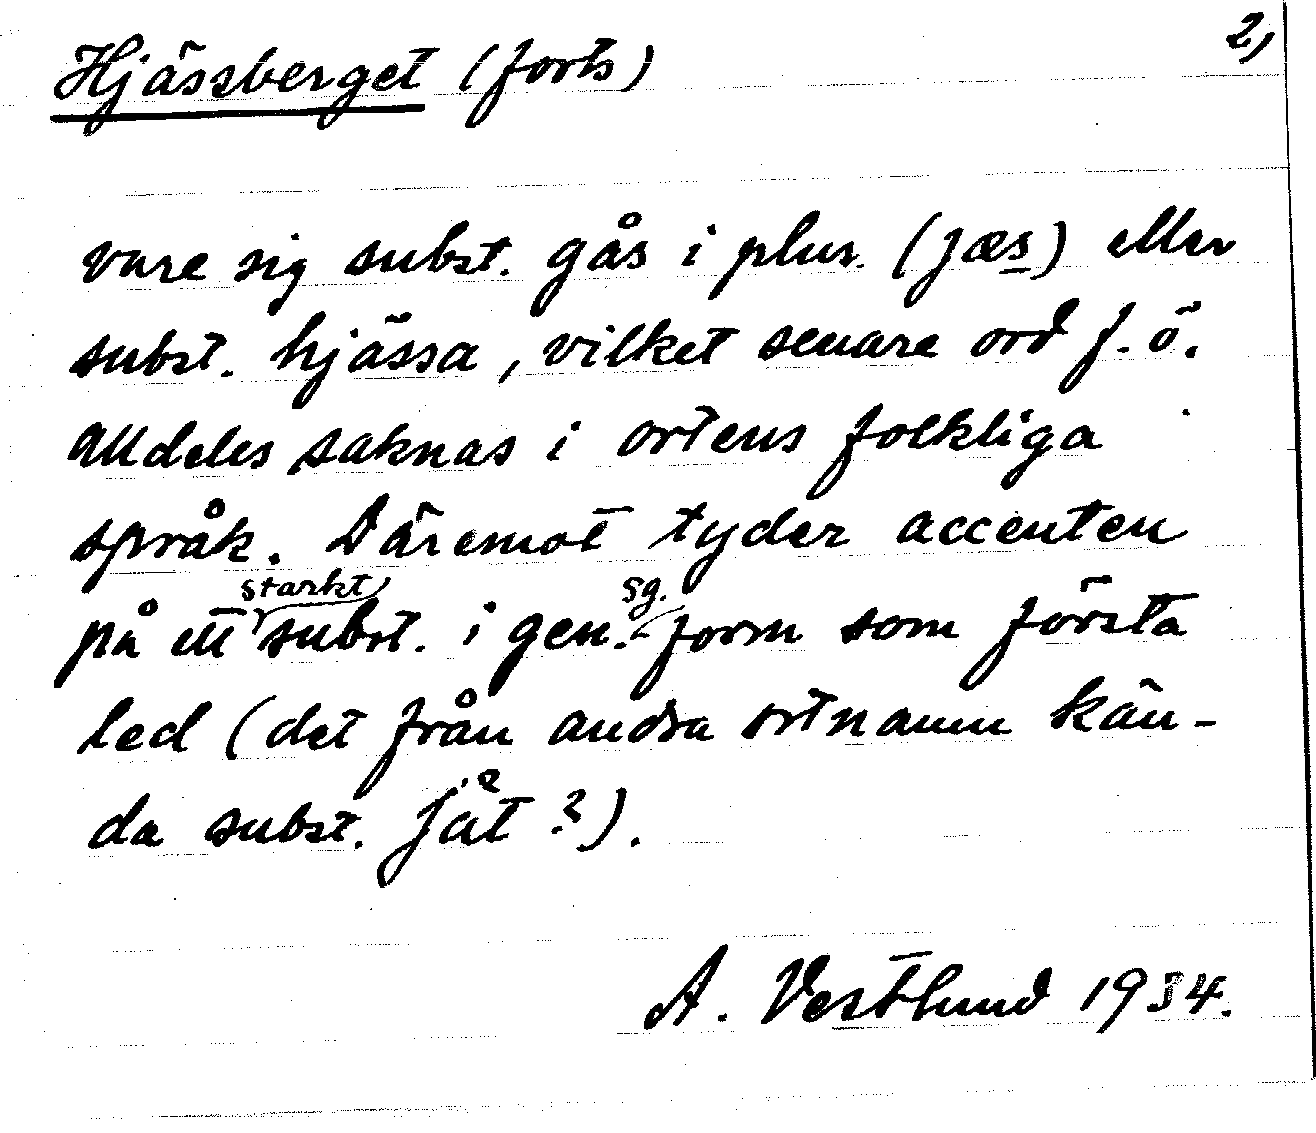 Hjässberget (forts) 2,
vare sig subst. gås i plur. (jæs) eller
subst. hjässa, vilket senare ord f. ö.
alldeles saknas i ortens folkliga
språk. Däremot tyder accenten
på ett starkt subst. i gen. sg. form som första
led (det från andra ortnamn kän-
da subst. jåt ?).
A. Vestlund 1934.